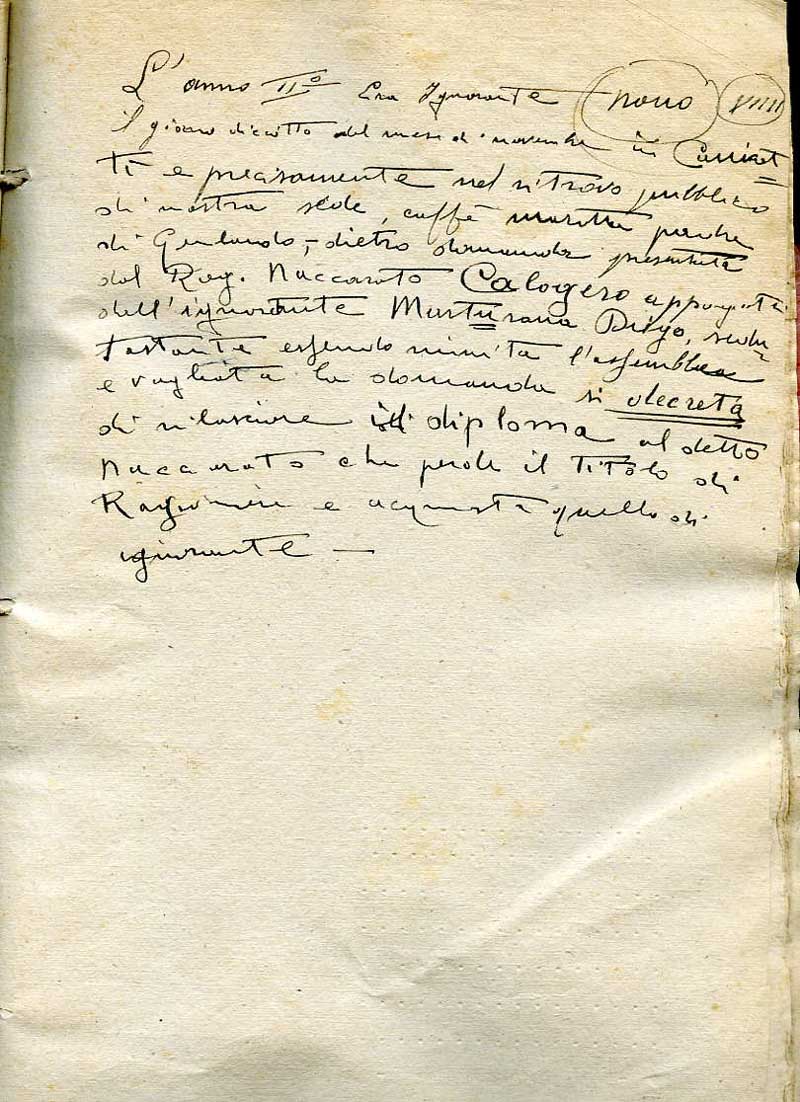 L'anno II° Era Ignorante nono VIIII
il giorno diciotto del mese di novembre in Canicat=
tì e precisamente nel ritrovo pubblico
di nostra sede, caffè
di Gerlando, dietro domanda presentata
dal Rag. Naccarato Calogero appoggiata
dell'ignorante Marturana Diego, sedu=
tastante essendo riunita l'assemblea
e vagliata la domanda si decreta
di rilasciare il diploma al detto
Naccarato che perde il titolo di
Ragioniere e acquista quello di
ignorante —